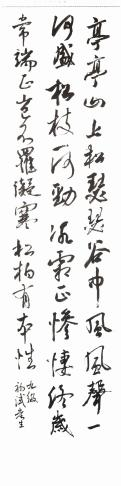 亭亭山上松瑟瑟谷中风风声一
何盛松枝一何劲冰霜正惨悽终岁
常端正岂不罹凝寒松柏有本性
九级
考生